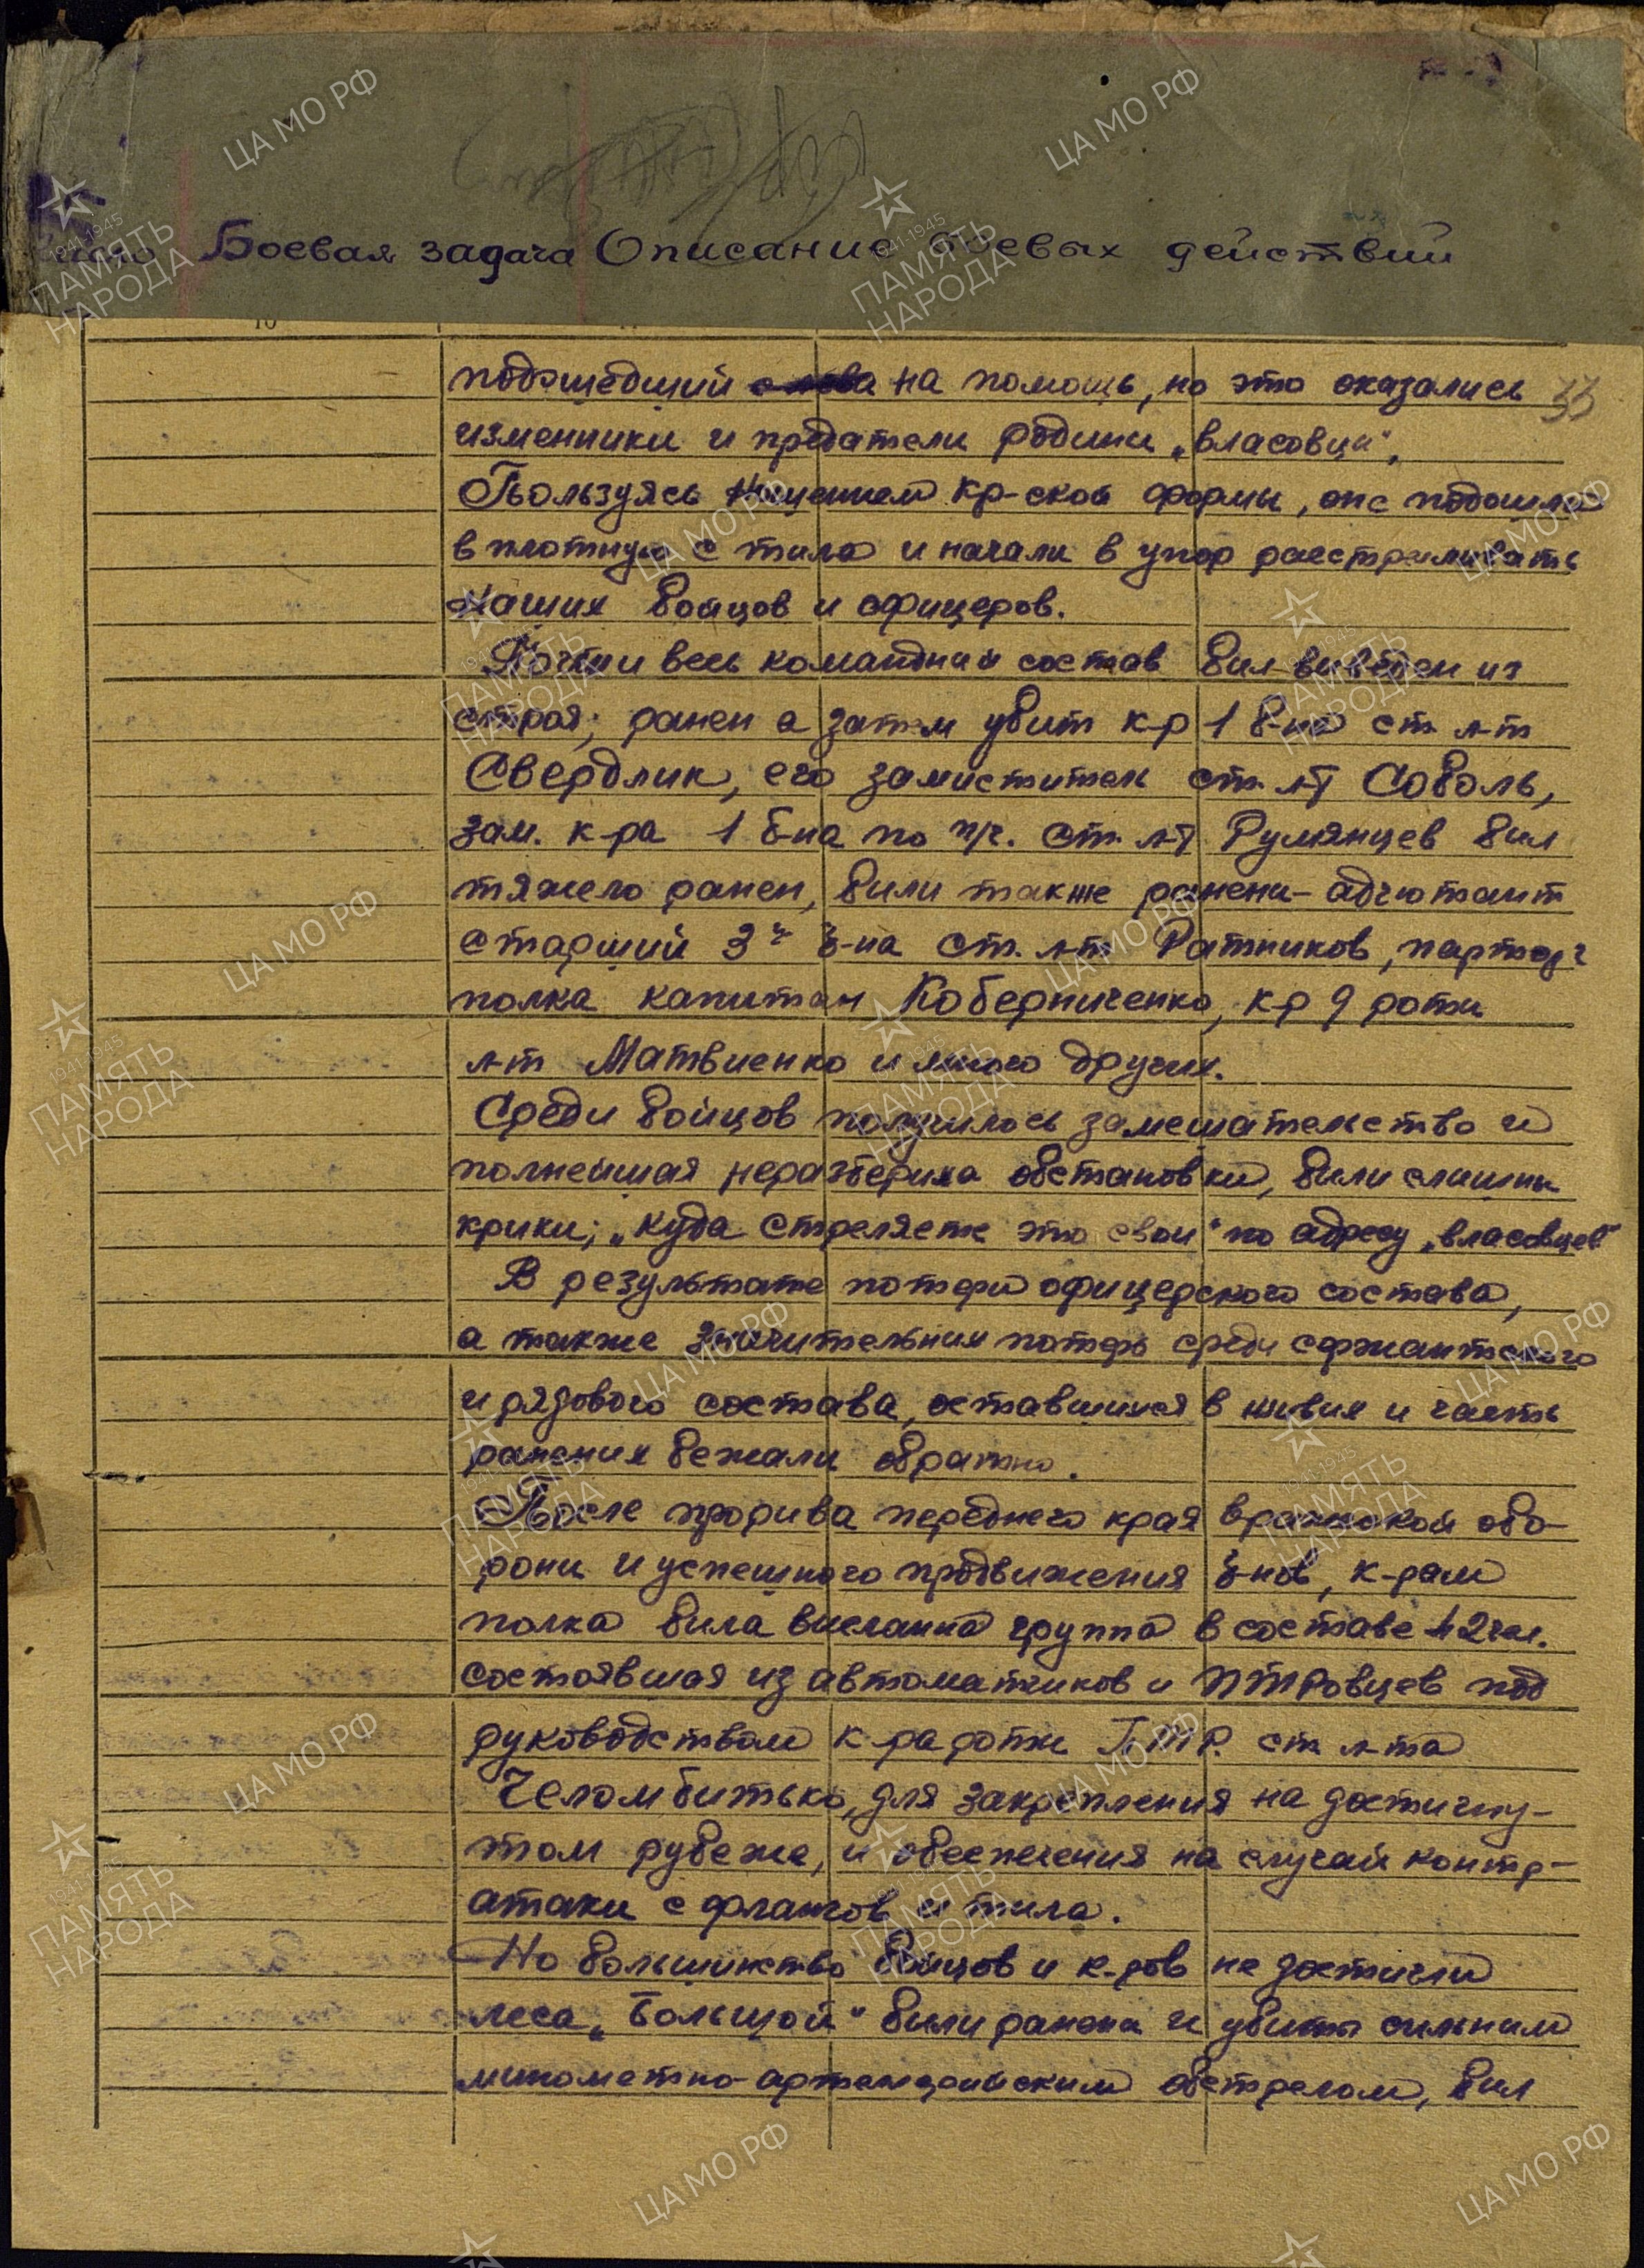 Боевая задача Описание боевых действий
33
подошедший на помощь, но это оказались
изменники и предатели родины „власовци",
Пользуясь ношением кр-ской формы, они подошли
в плотную с тила и начали в упор расстреливать
наших бойцов и офицеров.
Почти весь командний состав бил виведен из
строя; ранен а затем убит к-р 1 б-на ст. л-т
Свердлик, его заместитель ст. л-т Соболь,
зам. к-ра 1 б-на по п/ч. ст. л-т Румянцев бил
тяжело ранен, били также ранени - адъютант
старший 3го б-на ст. л-т Ратников, парторг
полка капитан Коберниченко, к-р 9 роти
л-т Матвиенко и много других.
Среди бойцов получилось замешательство и
полнейшая неразбериха обстановки, били слишни
крики; „куда стреляете это свои" по адресу „власовцев"
В результате потери офицерского состава,
а также значительних потерь среди сержантского
и рядового состава, оставшихся в живих и часть
ранених бежали обратно.
После прорива переднего края вражеской обо-
рони и успешного продвижения б-нов, к-ром
полка била вислана группа в составе 42 чел.
состоявшая из автоматчиков и ПТРовцев под
руководством к-ра роти П.Т.Р. ст. л-та
Челомбитько, для закрепления на достигну-
том рубеже, и обеспечения на случай контр-
атаки с флангов и тила.
Но большинство бойцов и к-ров не достигли
леса „Большой" били ранени и убити сильним
минометно-артелерийским обстрелом, бил
ЦА МО РФ
ПАМЯТЬ НАРОДА
1941-1945